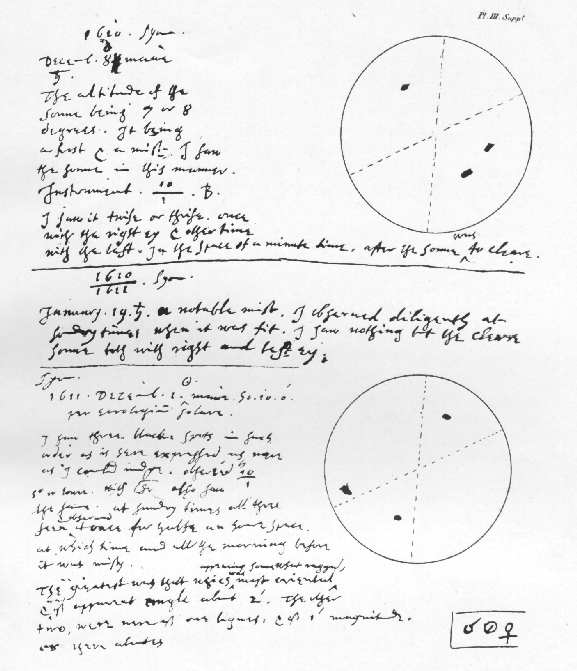 Pl. III. Suppt
1610. Syon.
Decemb. 8 mane
♄.
The altitude of the
sonne being 7 or 8
degrees. It being
a frost & a mist. I saw
the sonne in this manner.
Instrument. 10/1 . B.
I saw it twise or thrise. once
with the right ey & other time
with the left. In the space of a minute time, after the sonne was to cleare.
1610/1611 . Syon.
January. 19. ♄. a notable mist. I observed diligently at
sundry times when it was fit. I saw nothing but the cleare
sonne both with right and left ey.
Syon. ☉.
1611. Decemb. 1. mane. 10. 0.
per horologium solare.
I saw three blacke spots in such
order as is here expressed as nere
as I could judge. observed 10/1
also saw
the same. at sundry times all three
seen at once for halfe an houre space.
at which time and all the morning before
it was misty.
appearing somewhat ragged,
The greatest was that which was most oriental
& of apparent angle about 2'. The other
two, were nere of one bignes, & of 1' magnitude.
or there abouts
♂ ☉ ♀